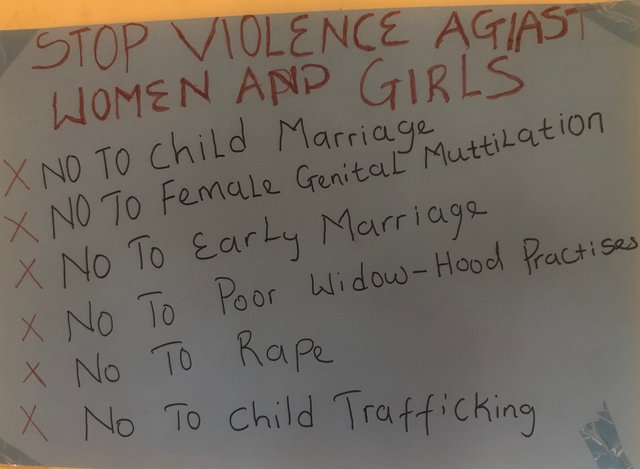 STOP VIOLENCE AGIAST
WOMEN AND GIRLS
X NO TO Child Marriage
X NO TO Female Genital Muttilation
X NO To Early Marriage
X No To Poor Widow-Hood Practises
X No To Rape
X No To Child Trafficking